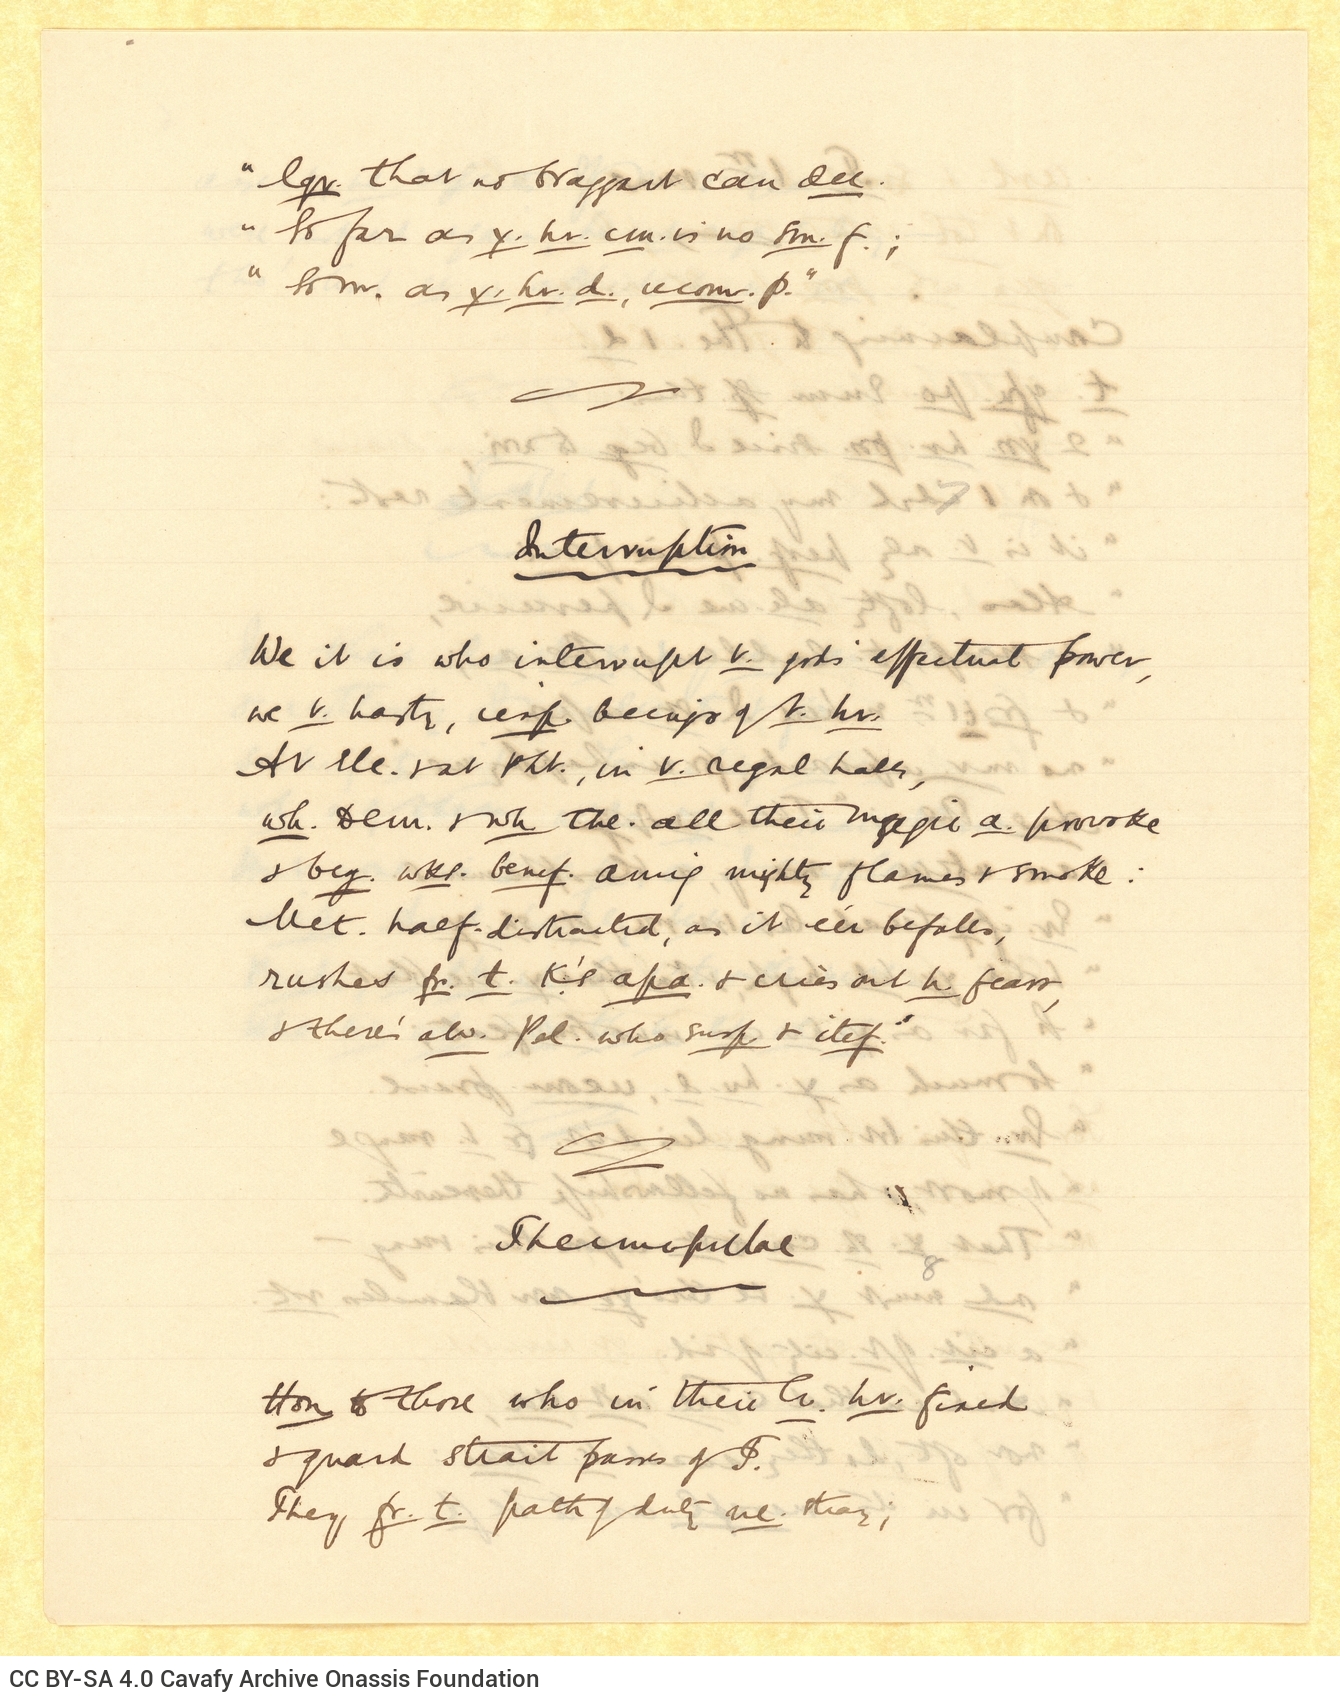 " lgr. that no braggart can dec.
" So far as y. hv. cm. is no sm. f. ;
" So m. as y. hv. d., ucom. p."
Interruption
We it is who interrupt t. gods' effectual power,
we t. hasty, inxp. beings of t. hr.
At Ele. & at Pht., in t. regal halls,
wh. Dem. & wh the. all their magic a. provoke
& beg. wks. benef. amig mighty flames & smoke :
Met. half-distracted, as it e'er befalls,
rushes fr. t. K.'s apa. & cries out h. fears,
& there's alw. Pel. who susp & itef.
Thermopylae
Hon to those who in their lv. hv. fixed
& guard strait passes of T.
They fr. t. path of duty ne. stray;
CC BY-SA 4.0 Cavafy Archive Onassis Foundation